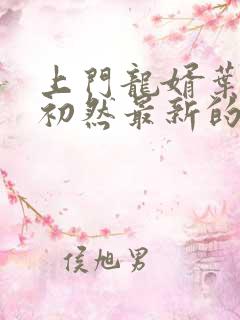 上門龍婿葉
初然最新的
侯旭男